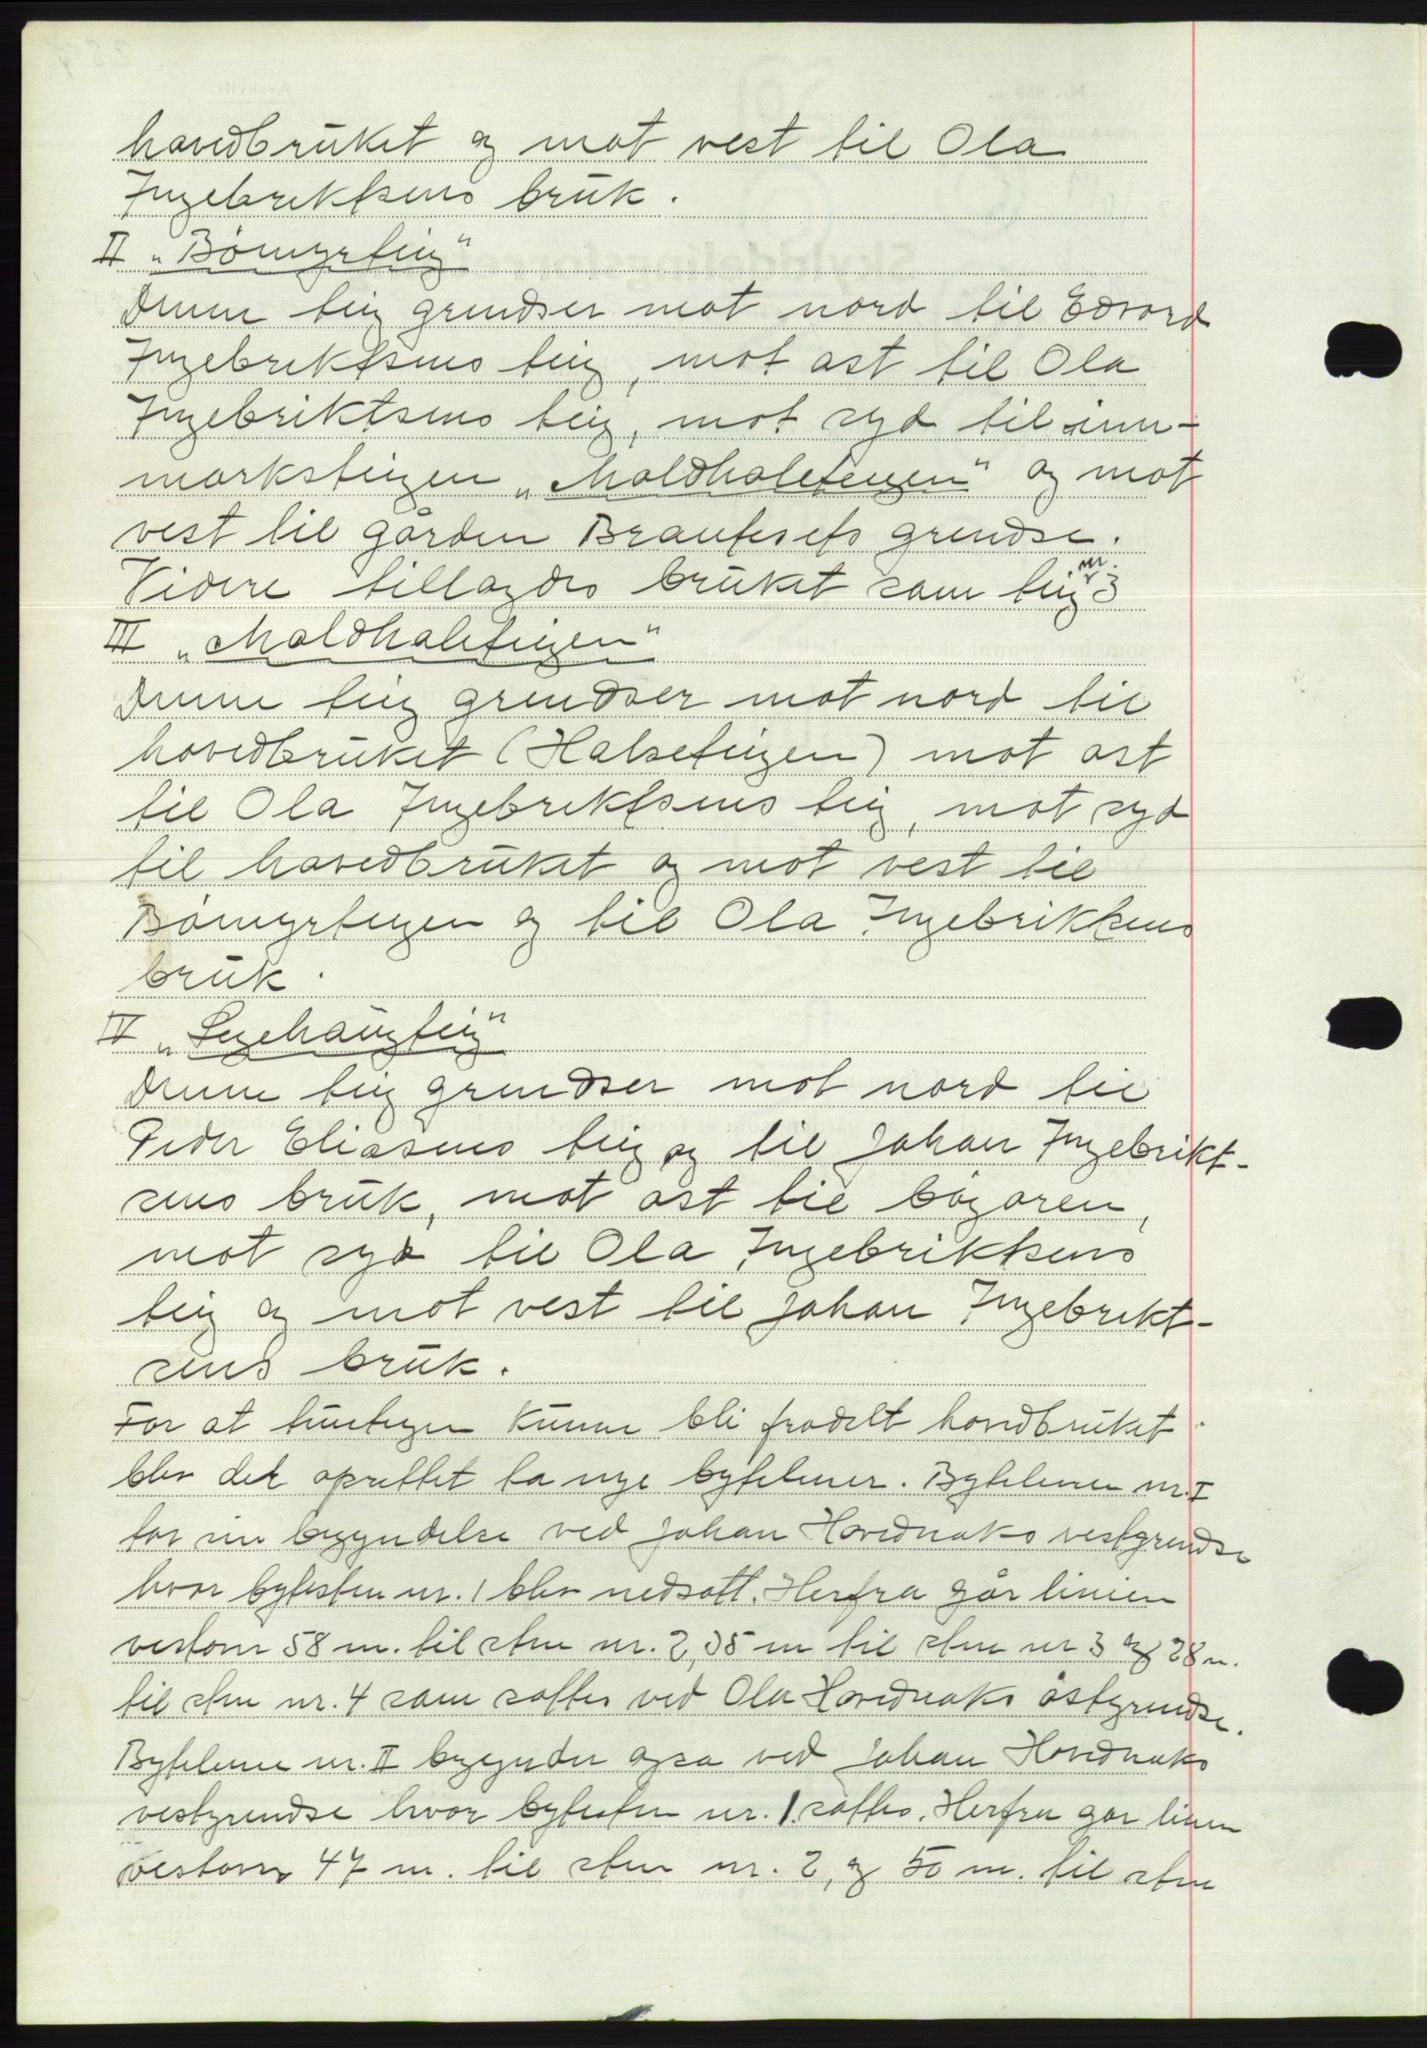 hovedbruket og mot vest til Ola
Ingebriktsens bruk.
II „Bömyrteig"
Denne teig grendser mot nord til Edvard
Ingebriktsens teig, mot ost til Ola
Ingebriktsens teig, mot syd til inn-
marksteigen „Moldhaleteigen" og mot
vest til gården Brautesets grendse.
Videre tillagdes bruket som teig nr. 3
III „Moldhaleteigen"
Denne teig grendser mot nord til
hovedbruket (Halseteigen) mot ost
til Ola Ingebriktsens teig, mot syd
til hovedbruket og mot vest til
Bömyrteigen og til Ola Ingebriktsens
bruk.
IV „Legehaugteig"
Denne teig grendser mot nord til
Peder Eliasens teig og til Johan Ingebrikt-
sens bruk, mot ost til bögaren,
mot syd til Ola Ingebriktsens
teig og mot vest til Johan Ingebrikt-
sens bruk.
For at tunteigen kunne bli fradelt hovedbruket
blev det oprettet to nye bytelinier. Bytelinien nr. I
tar sin begyndelse ved Johan Hovdnaks vestgrendse
hvor bytesten nr. 1 blev nedsatt. Herfra går linien
vestover 58 m. til sten nr. 2, 35 m til sten nr 3 og 28 m.
til sten nr. 4 som sattes ved Ola Hovdnaks östgrendse.
Bytelinie nr. II begynder også ved Johan Hovdnaks
vestgrendse hvor bytesten nr. 1. sattes. Herfra går linien
vestover 47 m. til sten nr. 2, og 50 m. til sten